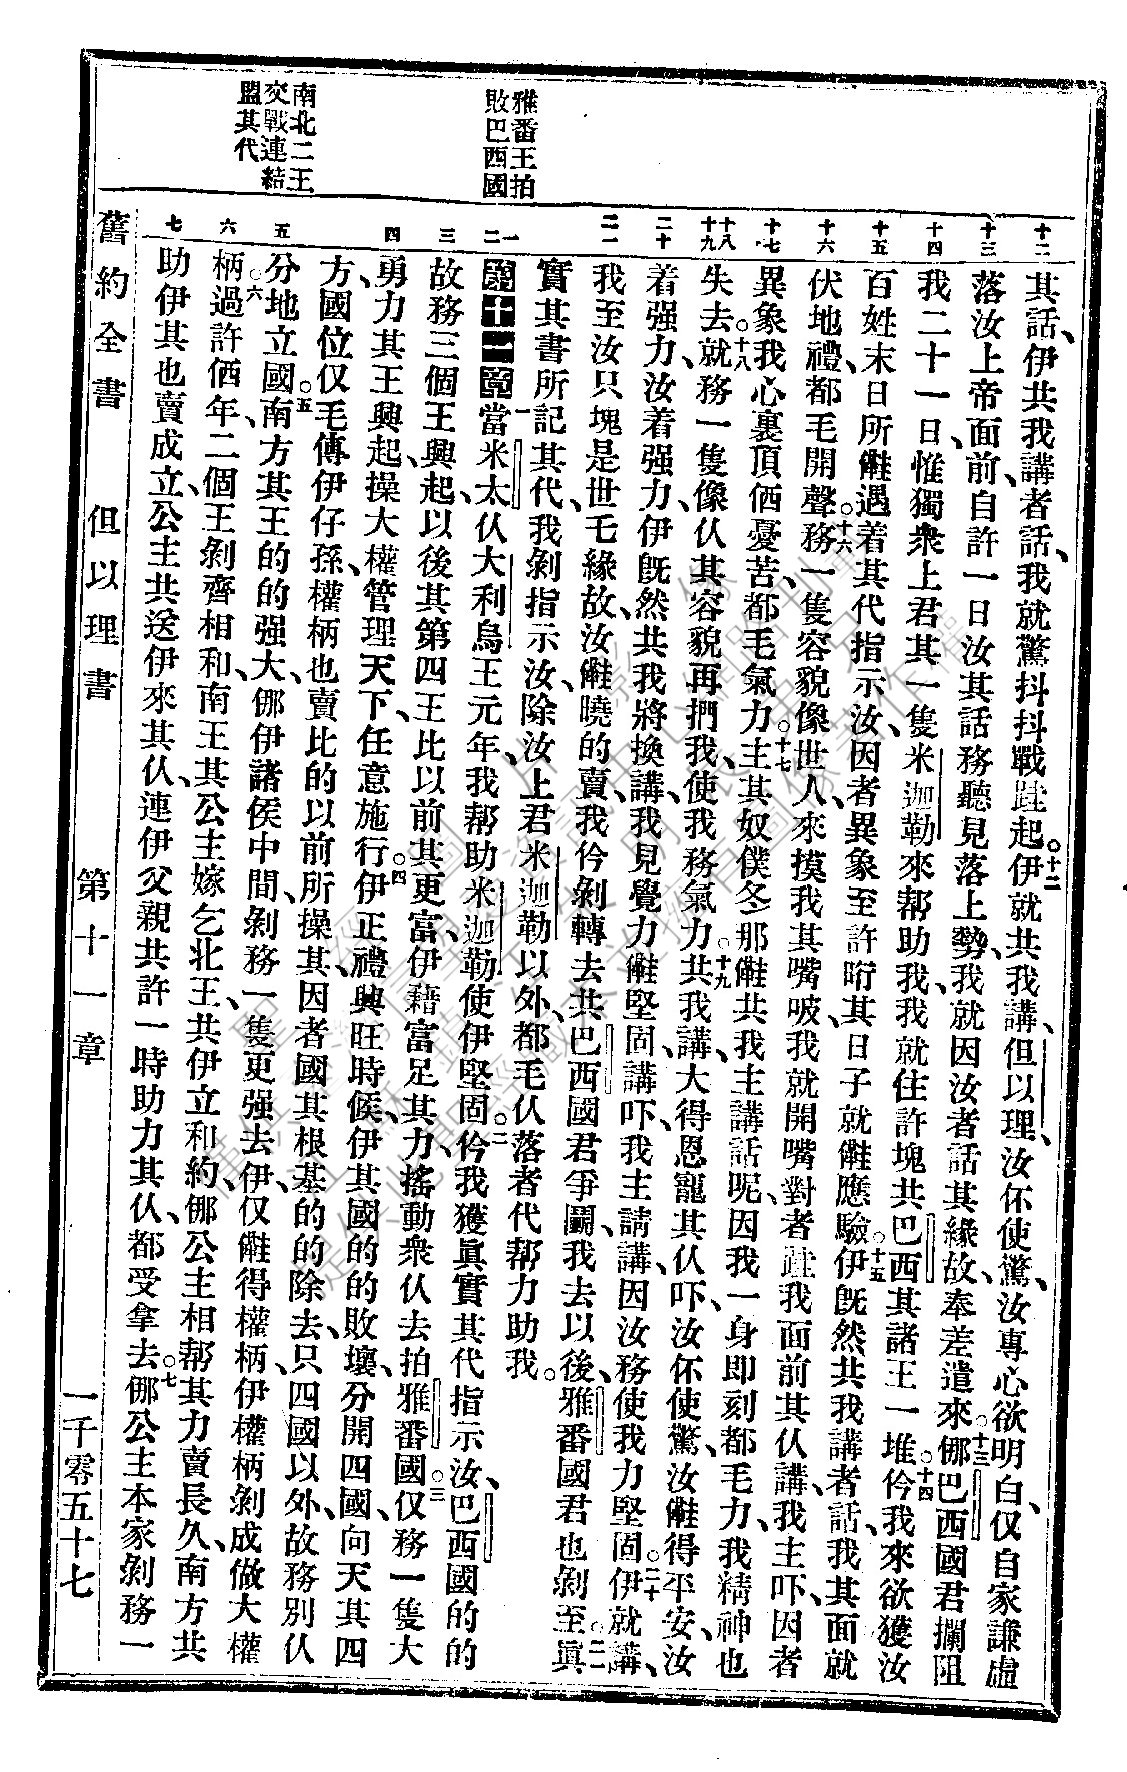 雅番王拍
敗巴西國
南北二王
交戰連結
盟其代
十二
十三
十四
十五
十六
十七
十八
十九
二十
二一
一
二
三
四
五
六
七
其話、伊共我講者話、我就驚抖抖戰跬起。十二伊就共我講、但以理、汝伓使驚、汝專心欲明白、仅自家謙虛
落汝上帝面前、自許一日汝其話務聽見落上勢、我就因汝者話其緣故、奉差遣來。十三㑚巴西國君攔阻
我二十一日、惟獨衆上君其一隻米迦勒來帮助我、我就住許塊共巴西其諸王一堆。十四伶我來欲獲汝
百姓末日所㒰遇着其代指示汝、因者異象至許昕其日子就㒰應驗。十五伊旣然共我講者話、我其面就
伏地禮、都毛開聲。十六務一隻容貌像世人、來摸我其嘴㖞、我就開嘴、對者跬我面前其仈講、我主吓、因者
異象我心裏頂偤憂苦、都毛氣力。十七主其奴僕冬那㒰共我主講話呢、因我一身即刻都毛力、我精神也
失去。十八就務一隻像仈其容貌再捫我、使我務氣力。十九共我講、大得恩寵其仈吓、汝伓使驚、汝㒰得平安、汝
着强力、汝着强力、伊旣然共我將換講、我見覺力㒰堅固、講吓、我主請講、因汝務使我力堅固。二十伊就講、
我至汝只塊是世乇緣故、汝㒰曉的賣、我伶剝轉去共巴西國君爭鬬、我去以後、雅番國君也剝至。二一眞
實其書所記其代、我剝指示汝、除汝上君米迦勒以外、都毛仈落者代帮力助我。
第十一章一當米太仈大利烏王元年、我帮助米迦勒使伊堅固。二伶我獲眞實其代指示汝、巴西國的的
故務三個王興起、以後其第四王比以前其更富、伊藉富足其力搖動衆仈去拍雅番國。三仅務一隻大
勇力其王興起、操大權管理天下、任意施行。四伊正禮興旺時候、伊其國的的敗壞、分開四國、向天其四
方、國位仅毛傳伊仔孫、權柄也賣比的以前所操其、因者國其根基的的除去、只四國以外、故務別仈
分地立國。五南方其王的的强大、㑚伊諸侯中間、剝務一隻更强去伊、仅㒰得權柄、伊權柄剝成做大權
柄。六過許偤年、二個王剝齊相和、南王其公主嫁乞北王、共伊立和約、㑚公主相帮其力賣長久、南方共
助伊其也賣成立、公主共送伊來其仈、連伊父親共許一時助力其仈、都受拿去。七㑚公主本家剝務一
舊約全書　但以理書　第十一章　一千零五十七